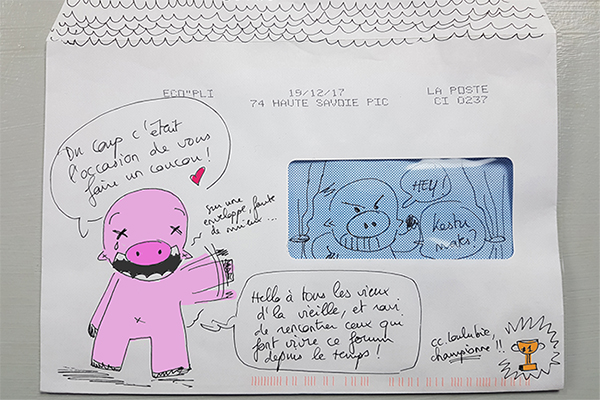 ECO"PLI
19/12/17
LA POSTE
74 HAUTE SAVOIE PIC
CI 0237
Du coup c'était
l'occasion de vous
faire un coucou !
sur une
enveloppe, faute
de mieux ...
HEY !
kestu
mates ?
Hello à tous les vieux
d'la vieille, et ravi
de rencontrer ceux qui
font vivre ce forum
depuis le temps !
cc. loulubie,
championne !!
#1